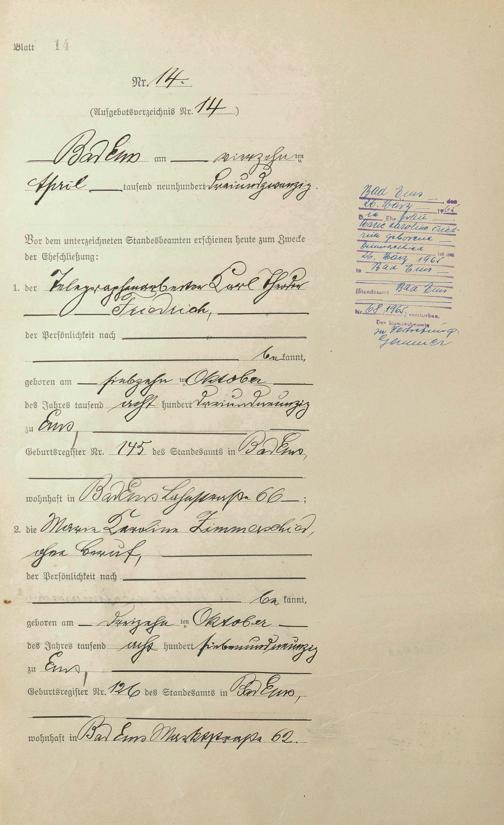 Blatt 14
Nr. 14.
(Aufgebotsverzeichnis Nr. 14)
Bad Ems am vierzehnten
April tausend neunhundert dreiundzwanzig.
Vor dem unterzeichneten Standesbeamten erschienen heute zum Zwecke
der Eheschließung:
1. der Telegraphenarbeiter Karl Theodor
Friedrich,
der Persönlichkeit nach
bekannt,
geboren am siebzehnten Oktober
des Jahres tausend acht hundert dreiundneunzig
zu Ems,
Geburtsregister Nr. 145 des Standesamts in Bad Ems,
wohnhaft in Bad Ems Lahnstraße 66 ;
2. die Marie Karoline Zimmerschied,
ohne Beruf,
der Persönlichkeit nach
bekannt,
geboren am dreizehnten Oktober
des Jahres tausend acht hundert siebenundneunzig
zu Ems,
Geburtsregister Nr. 126 des Standesamts in Bad Ems,
wohnhaft in Bad Ems Marktstraße 62.
Bad Ems, den
26. März 1965
Die Ehefrau
Marie Karoline Fried-
rich geborene
Zimmerschied ist am
26. März 1965
in Bad Ems
(Standesamt Bad Ems
Nr. 68/1965) verstorben.
Der Standesbeamte
In Vertretung